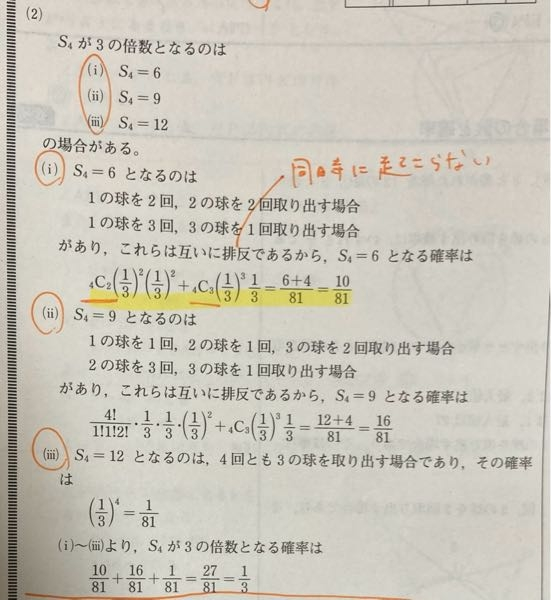 (2)
S₄ が3の倍数となるのは
(i) S₄ = 6
(ii) S₄ = 9
(iii) S₄ = 12
の場合がある。
同時に起こらない
(i) S₄ = 6 となるのは
1の球を2回，2の球を2回取り出す場合
1の球を3回，3の球を1回取り出す場合
があり，これらは互いに排反であるから，S₄ = 6 となる確率は
₄C₂(1/3)²(1/3)² + ₄C₃(1/3)³ 1/3 = (6+4)/81 = 10/81
(ii) S₄ = 9 となるのは
1の球を1回，2の球を1回，3の球を2回取り出す場合
2の球を3回，3の球を1回取り出す場合
があり，これらは互いに排反であるから，S₄ = 9 となる確率は
4!/(1!1!2!) · 1/3 · 1/3 · (1/3)² + ₄C₃(1/3)³ 1/3 = (12+4)/81 = 16/81
(iii) S₄ = 12 となるのは，4回とも3の球を取り出す場合であり，その確率
は
(1/3)⁴ = 1/81
(i)～(iii)より，S₄ が3の倍数となる確率は
10/81 + 16/81 + 1/81 = 27/81 = 1/3